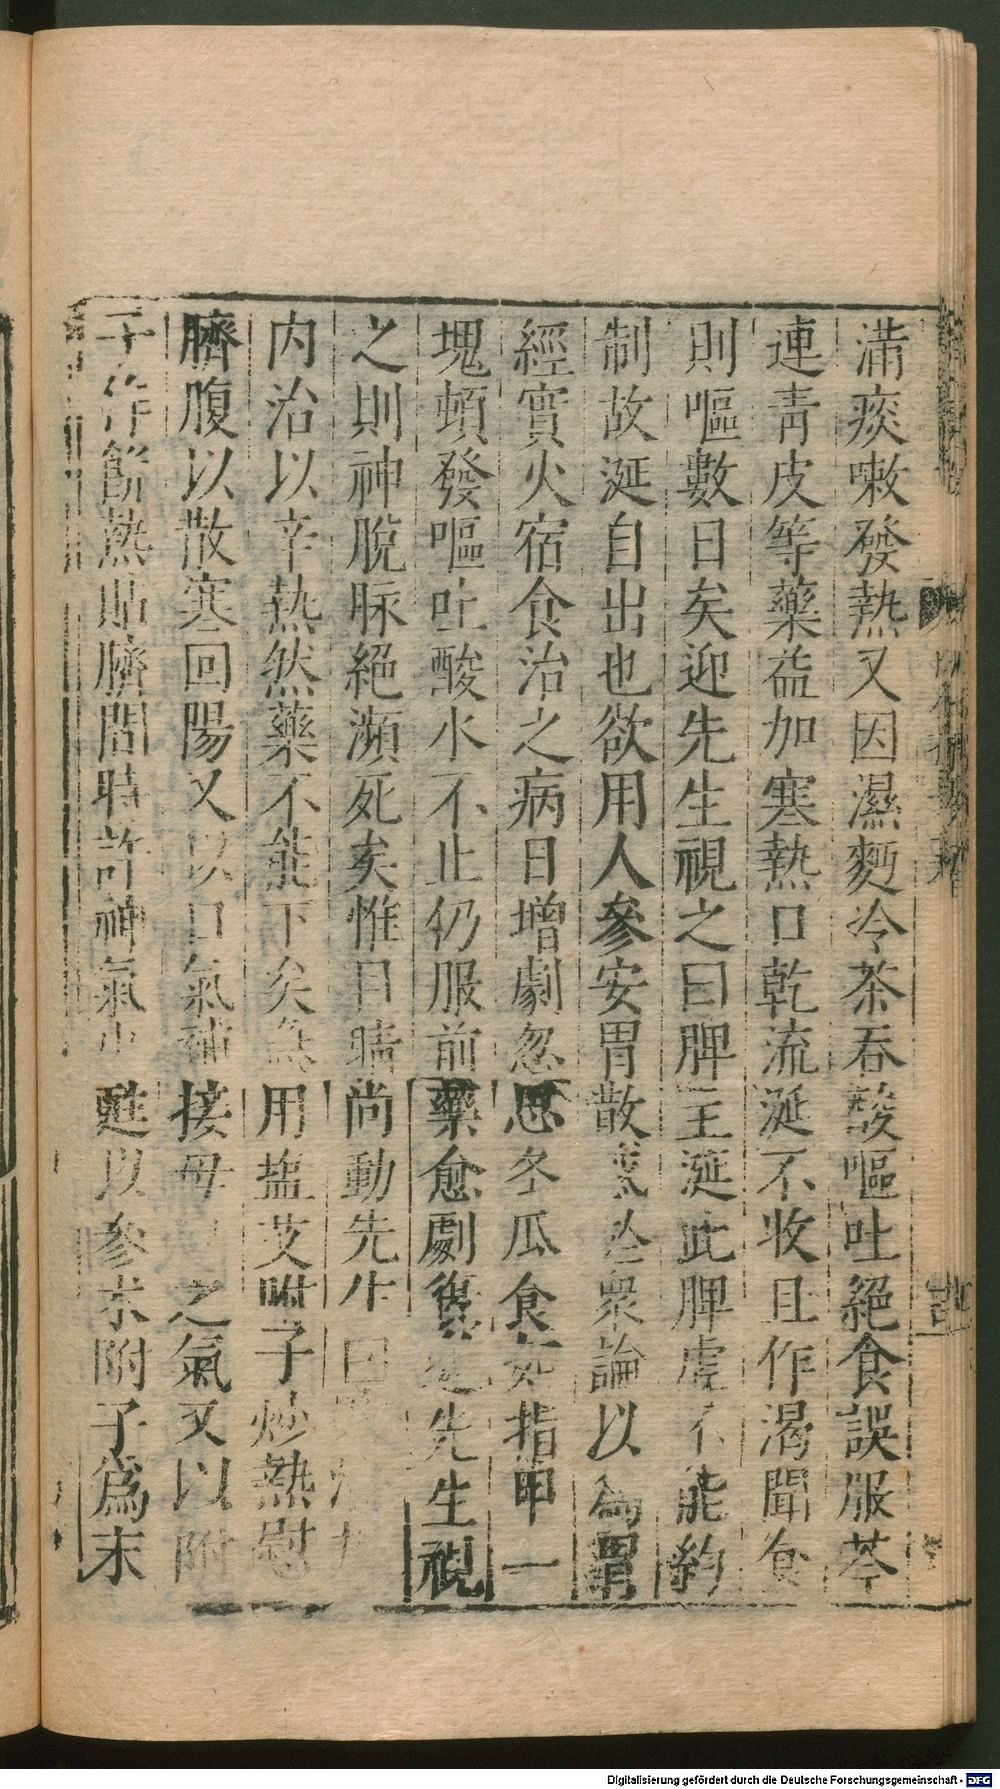 滿痰嗽發熱又因濕麪冷茶吞酸嘔吐絕食誤服芩
連青皮等藥益加寒熱口乾流涎不收且作渴聞食
則嘔數日矣迎先生視之曰脾主涎此脾虛不能約
制故涎自出也欲用人參安胃散衆論以為胃
經實火宿食治之病日增劇忽思冬瓜食如指甲一
塊頓發嘔吐酸水不止仍服前藥愈劇復先生視
之則神脫脉絕瀕死矣惟目睛尚動先生曰
內治以辛熱然藥不能下矣急用塩艾附子炒熱熨
臍腹以散寒回陽又以口氣補接母之氣又以附
子作餅熱貼臍間時許神氣少甦以參朮附子為末
Digitalisierung gefördert durch die Deutsche Forschungsgemeinschaft - DFG